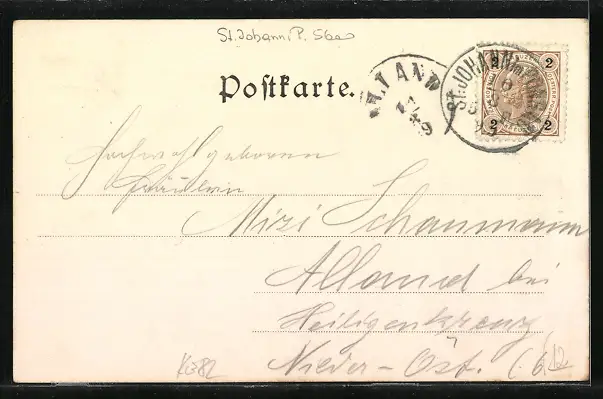 St. Johann, P. 56er
Postkarte.
ALLAND
ST. JOHANN
2 2
2 2
Hochwohlgeboren
Fräulein
Mizi Schaumann
Alland bei
Heiligenkreuz
Nieder-Öst.
K382